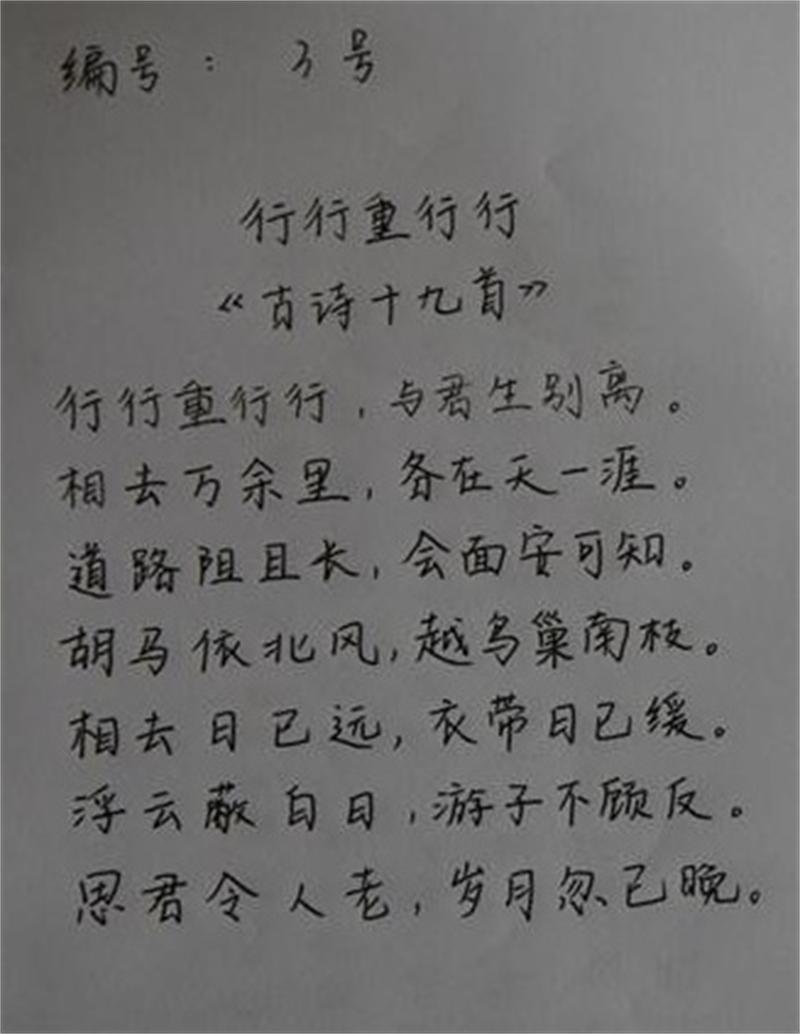 编号： 3号
行行重行行
《古诗十九首》
行行重行行，与君生别离。
相去万余里，各在天一涯。
道路阻且长，会面安可知。
胡马依北风，越鸟巢南枝。
相去日已远，衣带日已缓。
浮云蔽白日，游子不顾反。
思君令人老，岁月忽已晚。